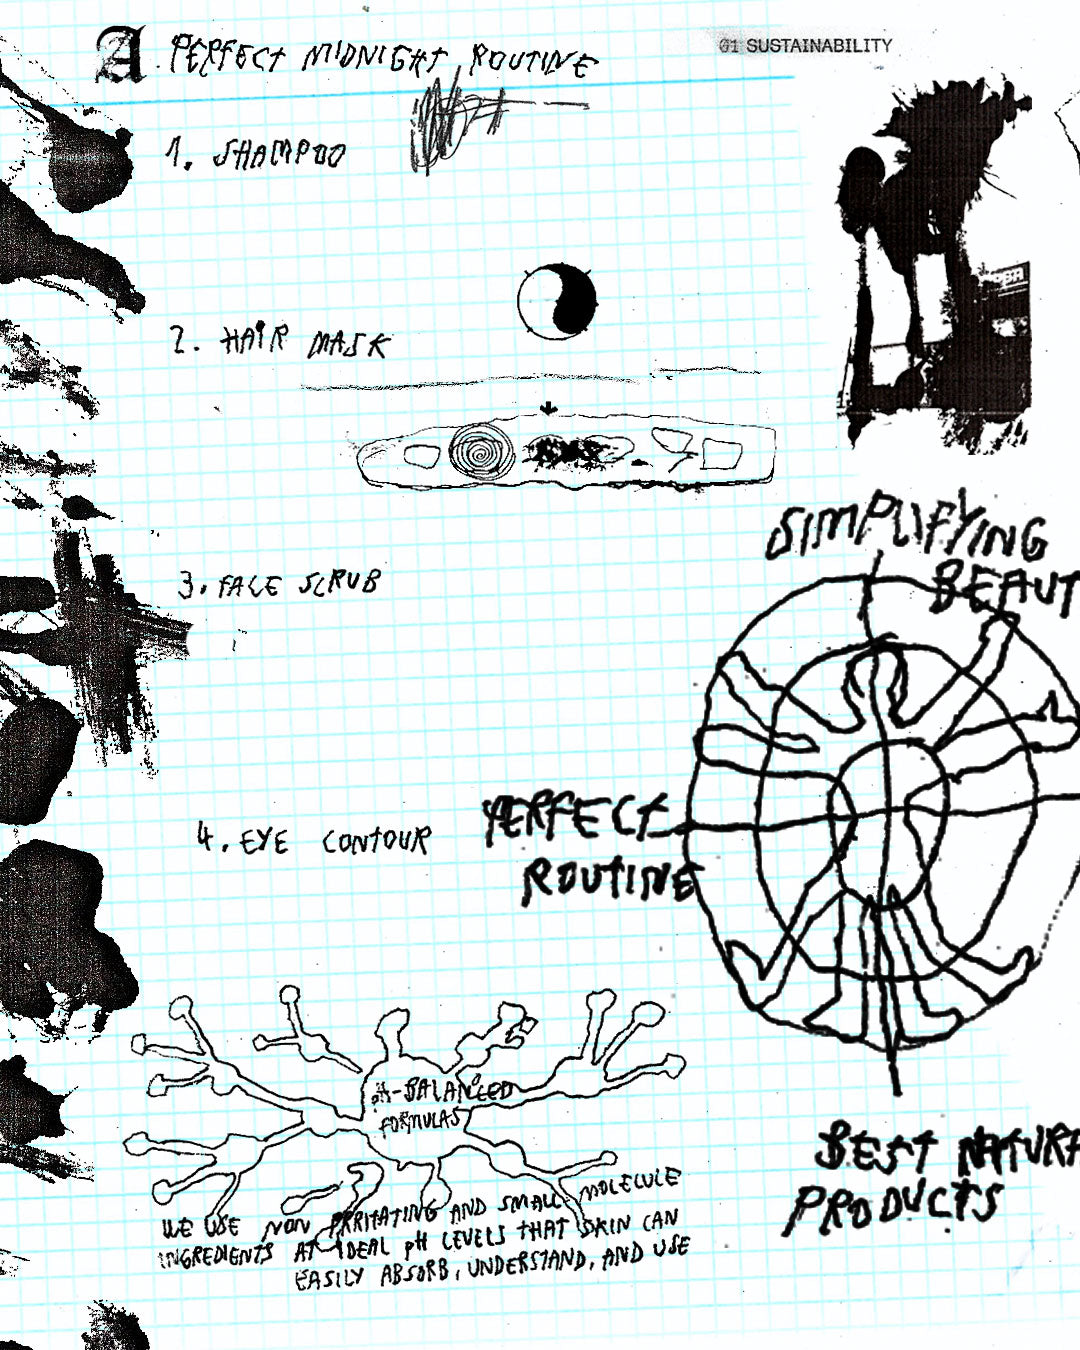 A PERFECT MIDNIGHT ROUTINE
01 SUSTAINABILITY
1. SHAMPOO
2. HAIR MASK
3. FACE SCRUB
4. EYE CONTOUR
SIMPLIFYING
BEAUT
PERFECT
ROUTINE
PH-BALANCED
FORMULAS
WE USE NON IRRITATING AND SMALL MOLECULE
INGREDIENTS AT IDEAL pH LEVELS THAT SKIN CAN
EASILY ABSORB, UNDERSTAND, AND USE
BEST NATURA
PRODUCTS